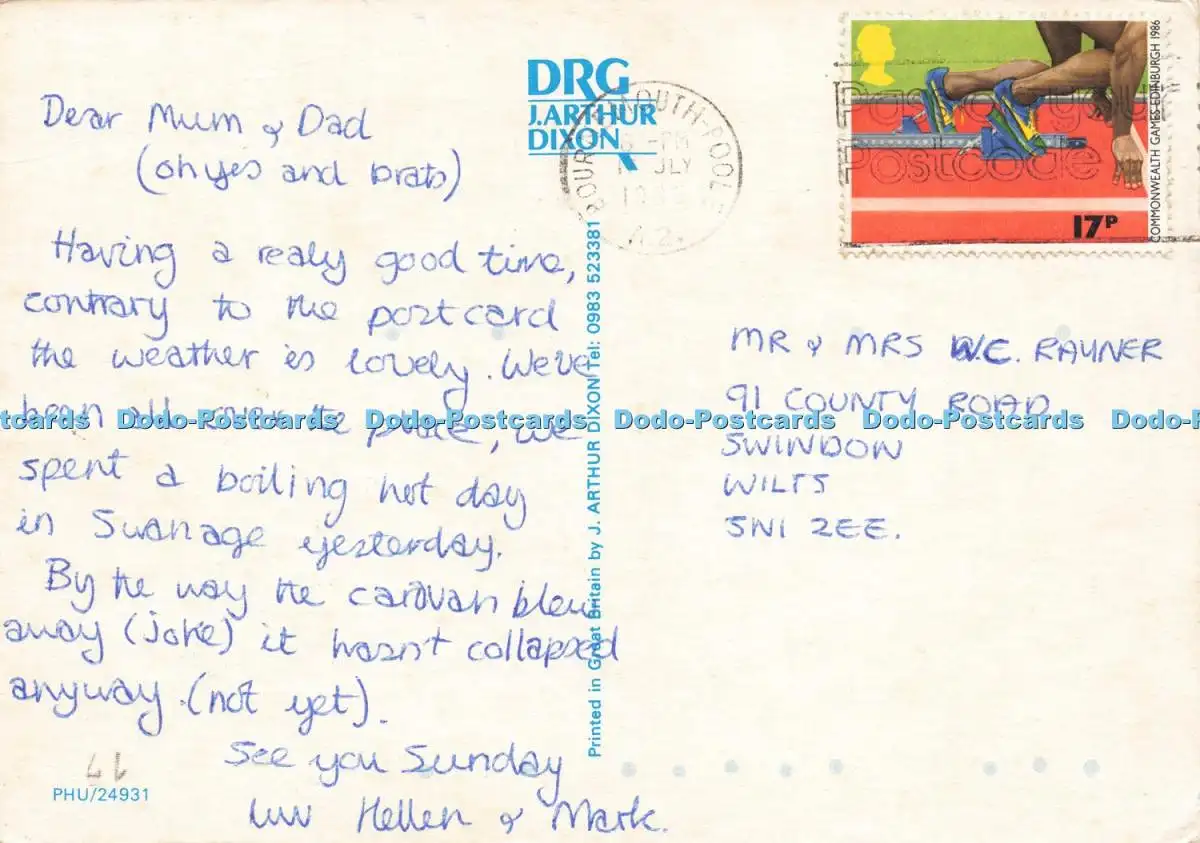 Dear Mum & Dad
(oh yes and brats)
Having a realy good time,
contrary to the postcard
the weather is lovely. We've
been all over the place, we
spent a boiling hot day
in Swanage yesterday.
By the way the caravan blew
away (joke) it hasn't collapsed
anyway. (not yet).
See you Sunday
luv Hellen & Mark.
PHU/24931
DRG
J.ARTHUR
DIXON
Printed in Great Britain by J. ARTHUR DIXON Tel: 0983 523381
BOURNEMOUTH-POOLE
-PM
JLY
A2.
Pass on your
Postcode
17P
COMMONWEALTH GAMES EDINBURGH 1986
MR & MRS W.C. RAYNER
91 COUNTY ROAD
SWINDON
WILTS
SN1 2EE.
Dodo-Postcards Dodo-Postcards Dodo-Postcards Dodo-Postcards